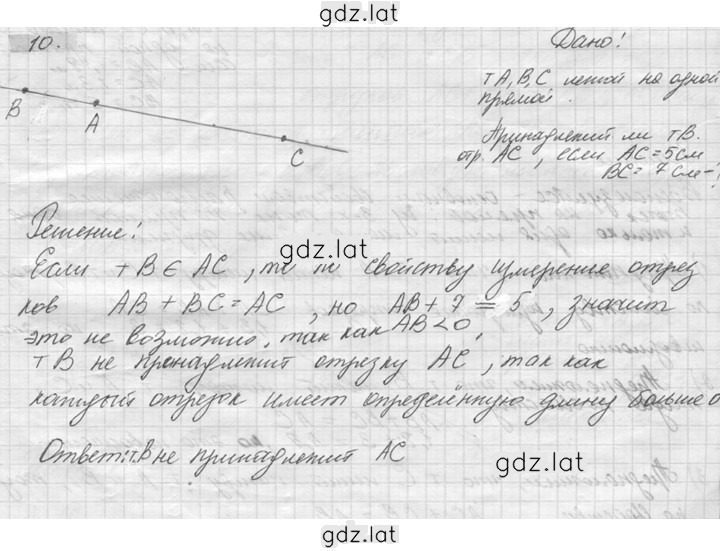 gdz.lat
10.
Дано!
т А, В, С лежат на одной
прямой.
B
A
C
Принадлежит ли т В.
отр. АС, если АС = 5 см,
ВС = 7 см - ?
Решение!
gdz.lat
Если т В ∈ АС, то по свойству измерение отрез
ков АВ + ВС = АС, но АВ + 7 = 5, значит
это не возможно, так как АВ < 0,
т В не принадлежит отрезку АС, так как
каждый отрезок имеет определённую длину больше 0
Ответ: т. В не принадлежит АС
gdz.lat
gdz.lat